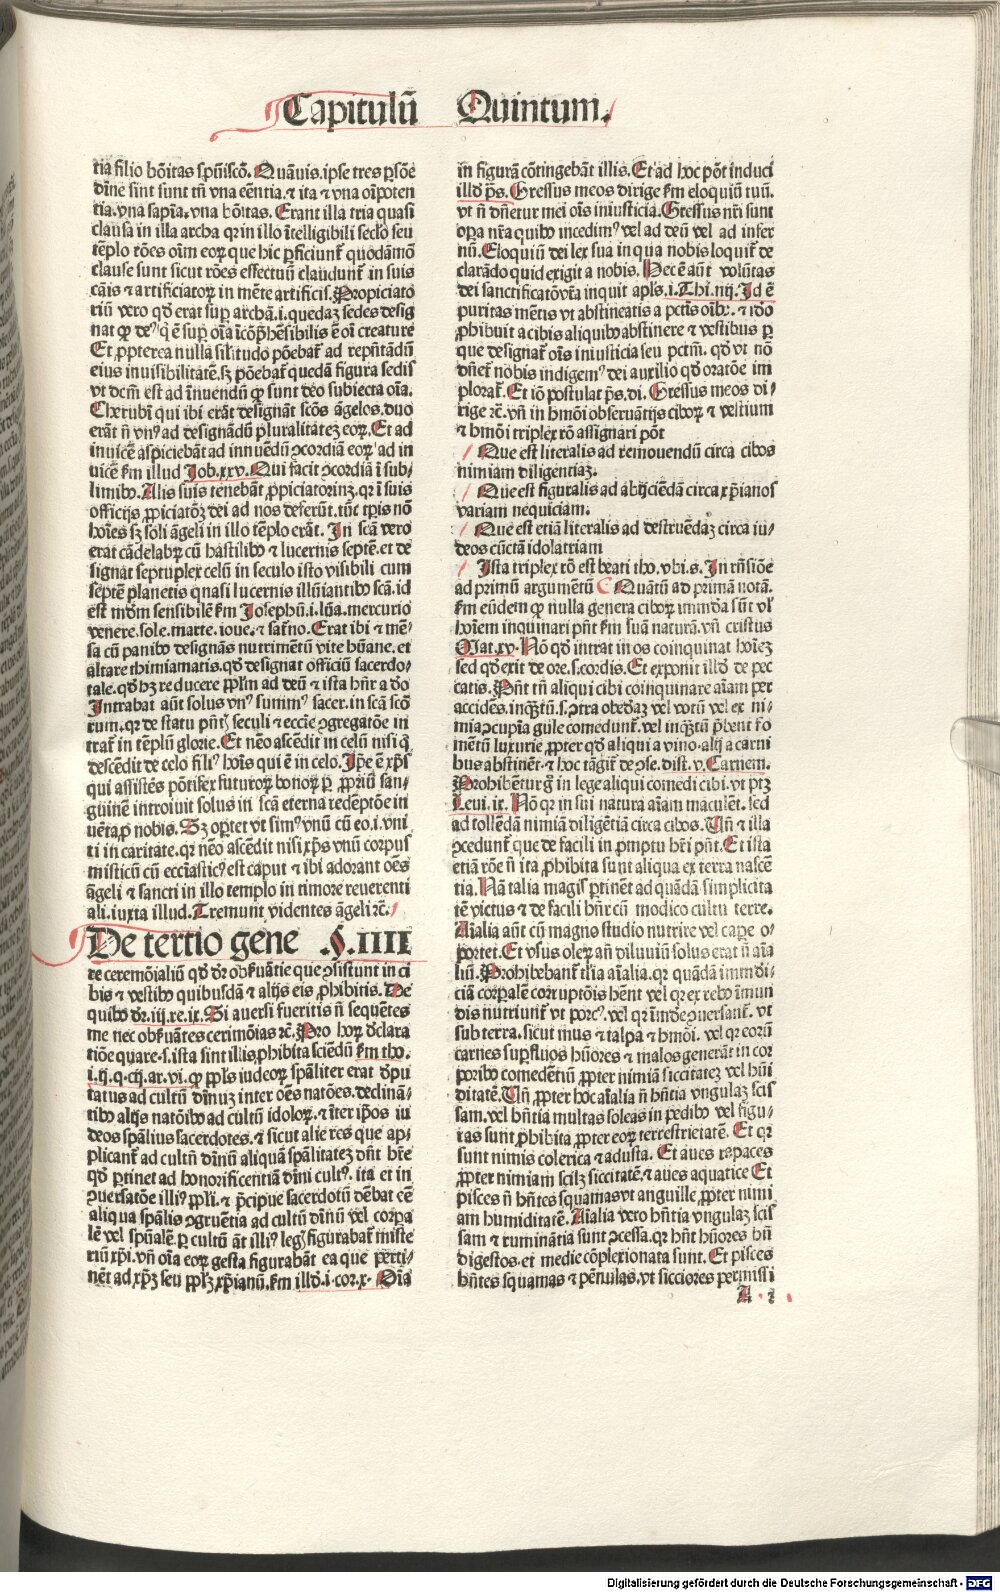 Capitulū Quintum.
tia filio bōitas spūiscō. Quāuis ipse tres psōe
dīne sint sunt tñ vna eēntia. ⁊ ita ⁊ vna oīpoten
tia. vna sapīa. vna bōitas. Erant illa tria quasi
clausa in illa archa qr in illo ītelligibili seclo seu
tēplo rōes oīm eoꝝ que hic pficiunt̄ quodāmō
clause sunt sicut rōes effectuū claudunt̄ in suis
cāis ⁊ artificiatoꝝ in mēte artificis. Propiciato
riū vero qd̄ erat sup archā. i. quedaz sedes desig
nat ꝙ deꝰ q ē sup oīa īcōp̄hēsibilis ē oī creature
Et ꝓpterea nulla silitudo pōebat̄ ad repñtādū
eius inuisibilitatē. sꝫ pōebat̄ quedā figura sedis
vt dcm̄ est ad īnuendū ꝙ sunt deo subiecta oīa.
Cherubī qui ibi erāt designāt scōs āgelos. duo
erāt ñ vnꝰ ad designādū pluralitatez eoꝝ. Et ad
inuicē aspiciebāt ad innuēdū ꝯcordiā eoꝝ ad in
uicē fm illud Job. xxv. Qui facit ꝯcordiā ī sub-
limibꝰ. Alis suis tenebāt ꝓpiciatoriuꝫ. qr ī suis
officijs ꝓpiciatōꝫ dei ad nos deferūt. tūc tꝑis nō
hoīes sꝫ soli āgeli in illo tēplo erāt. In scā vero
erat cādelabꝝ cū hastilibꝰ ⁊ lucernis septē. et de
signat septuplex celū in seculo isto visibili cum
septē planetis quasi lucernis illuīantibꝰ scā. id
est mdm̄ sensibilē fm Josephū. i. lūa. mercurio
venere. sole. marte. ioue. ⁊ satr̄no. Erat ibi ⁊ mē-
sa cū panibꝰ designās nutrimētū vite hūane. et
altare thimiamatis. qd̄ designat officiū sacerdo-
tale. qd̄ hꝫ reducere pplm̄ ad deū ⁊ ista hñr a dō
Intrabat aūt solus vnꝰ summꝰ sacer. in scā scō
rum. qr de statu pñtꝭ seculi ⁊ eccīe ꝯgregatōe in
trat̄ in tēplū glorie. Et nēo ascēdit in celū nisi q̄
descēdit de celo filiꝰ hoīs qui ē in celo. Ip̄e ē xp̄s
qui assistēs pōtifex futuroꝝ bonoꝝ p ꝓpriū san-
guinē introiuit solus in scā eterna redēptōe in
uēta ꝓ nobis. Sꝫ oꝑtet vt simꝰ vnū cū eo. i. vni
ti in caritate. qr nēo ascēdit nisi xp̄s vnū corpus
misticū cū eccīasticꝰ est caput ⁊ ibi adorant oēs
āgeli ⁊ sancti in illo templo in timore reuerenti
ali. iuxta illud. Tremunt videntes āgeli ⁊c.
De tertio gene .§. IIII
re ceremōialiū qd̄ dr̄ obseruātie que ꝯsistunt in ci
bis ⁊ vestibꝰ quibusdā ⁊ alijs eis ꝓhibitis. De
quibꝰ dr̄. iij. re. ix. Si auersi fueritis ñ sequētes
me nec obseruātes cerimōias ⁊c. Pro hoꝝ dclara
tiōe quare. s. ista sint illis ꝓhibita sciēdū fm tho.
i. ij. q. cij. ar. vi. ꝙ ppls iudeoꝝ spāliter erat dpu
tatus ad cultū dīnuꝫ inter oēs natōes. declinā-
tibꝰ alijs natōibꝰ ad cultū idoloꝝ. ⁊ īter ip̄os iu
deos spālius sacerdotes. ⁊ sicut alie res que ap-
plicant̄ ad cultū dīnū aliquā spālitatez dñt hr̄e
qd̄ ꝑtinet ad honorificentiā dīni cultꝰ. ita et in
ꝯuersatōe illiꝰ ppli. ⁊ p̄cipue sacerdotū dēbat eē
aliqua spālis ꝯgruētia ad cultū dīnū vel corpa
lē vel spūalē. p cultū āt illiꝰ legꝭ figurabat̄ miste
riū xp̄i. vñ oīa eoꝝ gesta figurabāt ea que perti-
nēt ad xp̄ꝫ seu pplꝫ xp̄ianū. fm illd̄. i. cor. x. Oīa
in figurā cōtingebāt illis. Et ad hoc pōt induci
illd̄ ps. Gressus meos dirige fm eloquiū tuū.
vt ñ dñetur mei oīs iniusticia. Gressus nr̄i sunt
oꝑa nr̄a quibꝰ incedimꝰ vel ad deū vel ad infer
nū. Eloquiū dei lex sua in qua nobis loquit̄ de
clarādo quid exigit a nobis. Hec ē aūt volūtas
dei sanctificatō vr̄a inquit apls. i. Thi. iiij. Id ē
puritas mētis vt abstineatis a pctīs oībꝰ. ⁊ idō
ꝓhibuit a cibis aliquibꝰ abstinere ⁊ vestibus p
que designat̄ oīs iniusticia seu pctm̄. qd̄ vt nō
dñet̄ nobis indigemꝰ dei auxilio qd̄ oratōe im
plorat̄. Et iō postulat ps. di. Gressus meos di-
rige ⁊c. vñ in hmōi obseruātijs ciboꝝ ⁊ vestium
⁊ hmōi triplex rō assignari pōt
Que est literalis ad remouendū circa cibos
nimiam diligentiaꝫ.
Que est figuralis ad abijciēdā circa xp̄ianos
variam nequiciam.
Que est etiā literalis ad destruēdaꝫ circa iu-
deos cūctā idolatriam
Ista triplex rō est beati tho. vbi. s. In rñsiōe
ad primū argumētū Quātū ad primā nota.
fm eūdem ꝙ nulla genera ciboꝝ imūda sūt vl̄
hoīem inquinari pñt fm suā naturā. vñ cristus
Mat. xv. Nō qd̄ intrat in os coinquinat hoīeꝫ
sed qd̄ exit de ore. s. cordis. Et exponit illd̄ de pec
catis. Pñt tñ aliqui cibi coinquinare aīam per
accidēs. inqꝫtū. s. ꝯtra obedāꝫ vel votū vel ex ni-
mia ꝯcupīa gule comedunt̄. vel inqꝫtū p̄bent fo
mētū luxurie ꝓpter qd̄ aliqui a vino. alij a carni
bus abstinēt. ⁊ hoc tāgit̄ de ꝯse. dist. v. Carnem.
Prohibētur gͦ in lege aliqui comedi cibi. vt ptꝫ
Leui. ix. Nō qr in sui natura aīam maculēt. sed
ad tollēdā nimiā diligētiā circa cibos. Vñ ⁊ illa
ꝯcedunt̄ que de facili in promptu hr̄i pñt. Et ista
etiā rōe ñ ita ꝓhibita sunt aliqua ex terra nascē
tia. Nā talia magis ꝑtinēt ad quādā simplicita
tē victus ⁊ de facili hñr cū modico cultu terre.
Aīalia aūt cū magno studio nutrire vel caꝑe o-
portet. Et vsus oleꝝ añ diluuiū solus erat ñ aīa
liū. Prohibebant̄ tñ aīalia. qr quādā immūdi-
ciā corpalē corruptōis hēnt vel qr ex rebꝰ īmun
dis nutriunt̄ vt porcꝰ. vel qr īmūde ꝯuersant̄. vt
sub terra. sicut mus ⁊ talpa ⁊ hmōi. vel qr eorū
carnes suꝑfluos hūores ⁊ malos generāt in cor
poribꝰ comedētiū ꝓpter nimiā siccitatez vel hūi
ditatē. Vñ ꝓpter hoc aīalia ñ hñtia vngulaꝫ scis
sam. vel hñtia multas soleas in pedibꝰ vel figu-
ras sunt ꝓhibita ꝓpter eoꝝ terrestrietatē. Et qr
sunt nimis colerica ⁊ adusta. Et aues rapaces
ꝓpter nimiam scilꝫ siccitatē. ⁊ aues aquatice Et
pisces ñ hñtes squamas vt anguille ꝓpter nimi
am humiditatē. Aīalia vero hñtia vngulaꝫ scis
sam ⁊ ruminātia sunt ꝯcessa. qr hñt hūores bñ
digestos. et medie cōplexionata sunt. Et pisces
hñtes squamas ⁊ pēnulas. vt sicciores permissi
Digitalisierung gefördert durch die Deutsche Forschungsgemeinschaft - DFG